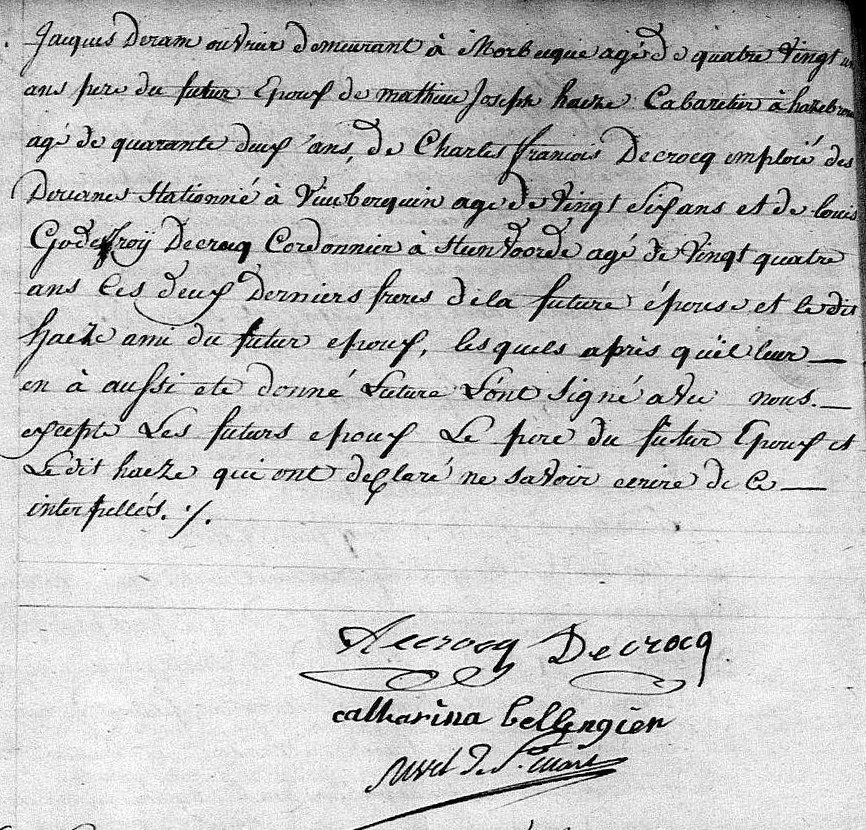 Jacques Deram ouvrier demeurant à Morbecque agé de quatre vingt un
ans pere du futur Epoux de mathieu Joseph haeze Cabaretier à hazebrouc
agé de quarante deux ans, de Charles francois Decrocq emploié des
Douanes Stationné à Vieuberquin age de vingt Six ans et de louis
Godeffroÿ Decrocq Cordonnier à Steenvoorde agé de Vingt quatre
ans les deux Derniers freres de la future épouse et le dit
haeze ami du futur epoux, lesquels après qu'il leur
en à aussi ete donné Lecture L'ont Signé avec nous.
excepté Les futurs epoux Le pere du futur Epoux et
Ledit haeze qui ont declaré ne savoir ecrire de ce
interpellés. ./.
Decrocq Decrocq
catharina bellengier